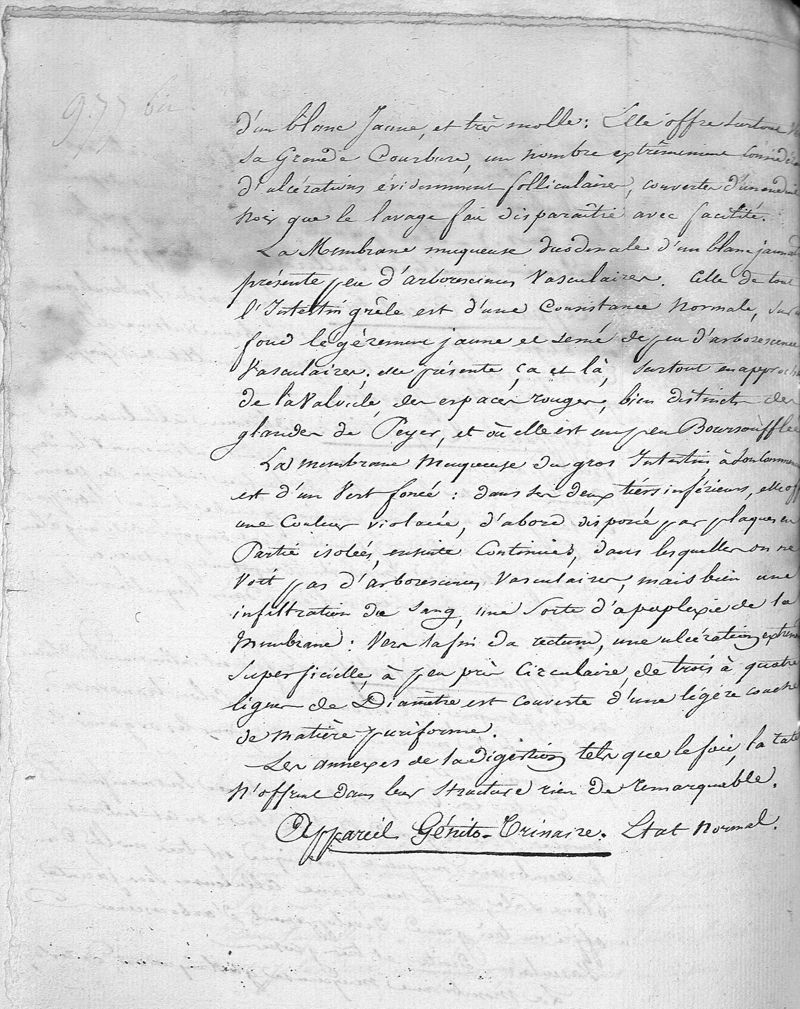 977 bis
d'un blanc Jaune, et très molle: Elle offre surtout
sa Grande Courbure, un nombre extrêmement Considér
d'ulcérations évidemment folliculaires, couvertes d'un enduit
noir que le lavage fait disparaître avec facilité.
La Membrane muqueuse duodénale d'un blanc jaunat
présente peu d'arborescences Vasculaires. Celle de tout
l'Intestin grêle est d'une Consistance Normale, sur
fond légèrement jaune et semé de peu d'arborescences
Vasculaires; elle présente, ça et là, surtout en approch
de la Valvule, des espaces rouges, bien distincts des
glandes de Peyer, et où elle est un peu Boursoufflée
La membrane Muqueuse du gros Intestin à son Commen
est d'un Vert foncé: dans ses deux tiers inférieurs, elle off
une Couleur violacée, d'abord disposée par plaques en
Partie isolées, ensuite Continues, dans lesquelles on ne
Voit pas d'arborescences Vasculaires, mais bien une
infiltration du sang, une Sorte d'apoplexie de la
Membrane: Vers la fin du rectum, une ulcération extrêm
Superficielle, à peu près Circulaire, de trois à quatre
lignes de Diamètre est couverte d'une légère couche
de matière puriforme.
Les annexes de la digestion tels que le foie, la rate
N'offrent dans leur structure rien de remarquable.
Appareil Génito-Urinaire. Etat Normal.